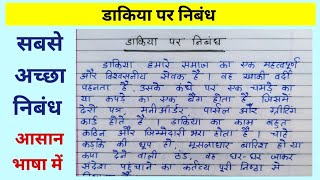 डाकिया पर निबंध
सबसे
अच्छा
निबंध
आसान
भाषा में
डाकिया पर निबंध
डाकिया हमारे समाज का एक महत्वपूर्ण
और विश्वसनीय सेवक है। वह खाकी वर्दी
पहनता है, उसके कंधे पर एक चमड़े का
या कपड़े का एक बैग होता है, जिसमें
ढेरों पत्र, मनीऑर्डर, पार्सल और ग्रीटिंग
कार्ड होते हैं। डाकिया का काम बहुत
कठिन और जिम्मेदारी भरा होता है। चाहे
कड़कि की धूप हो, मूसलाधार बारिश हो या
कंपा देने वाली ठंड, वह घर-घर जाकर
संदेश पहुंचाने का कर्तव्य पूरी निष्ठा से